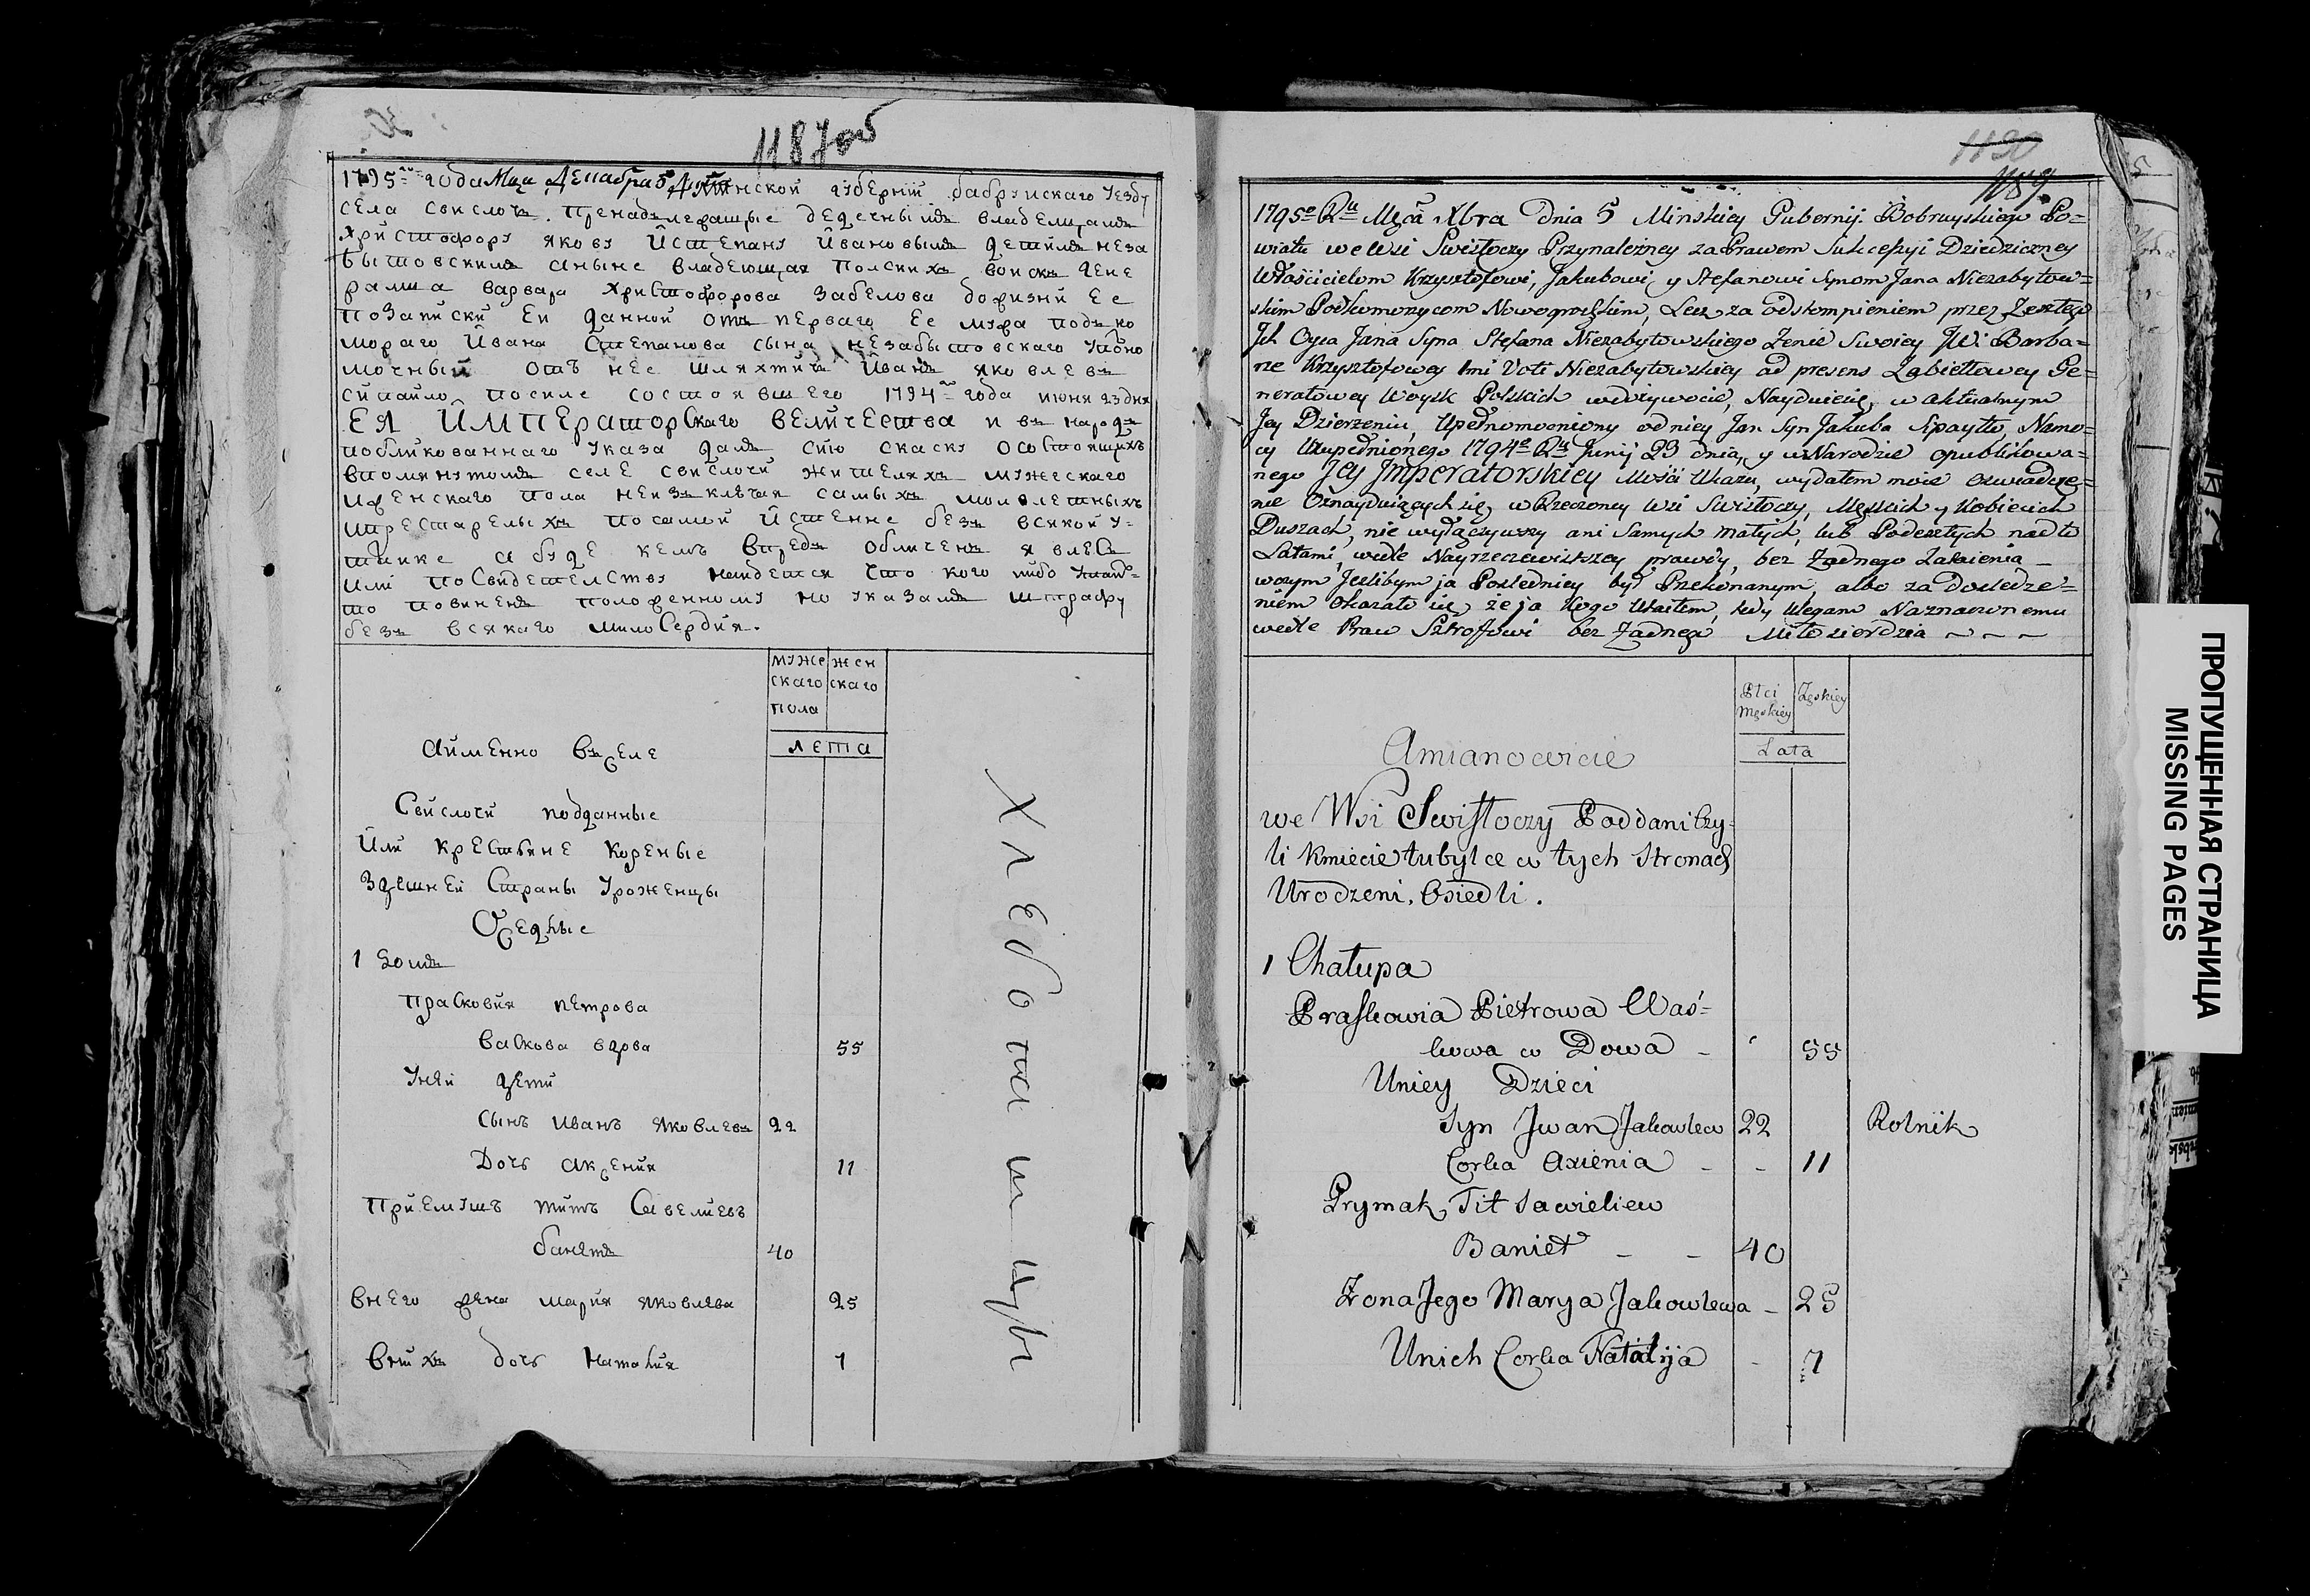 1187об
1795го года Мца Декабря 5 Дня Минской губернiи бабруйскаго уезду
села свислочъ. пренадлежащые дедечныйдъ владелцамъ
Христофору якову йстепану йвановымъ детймъ неза
бытовскимъ аныне владеющая полскихъ войскъ гене
ралша варвара христофорова забелова дожизни ее
позаписки ей данной отъ перваго ее мужа подъко
мораго йвана степанова сына незабытовскаго упоно
мочный отъ нее шляхтичъ йванъ яковлевъ
сйпайло после состоявшего 1794го года июня 23 дня
ЕЯ ИМПЕРАТОРскаго величества и въ народъ
побликованнаго указа далъ сiю скаску осостоящихъ
впомянутомъ селе свислочй жителяхъ мужескаго
иженскаго пола неизключая самыхъ малолетныхъ
ипрестарелыхъ посамой йстенне безъ всякой у-
тайке а буде кемъ впредъ обличенъ явлюсъ
или посвидетелству найдется что кого либо утаилъ
то повиненъ положенному по указамъ штрафу
безъ всякаго милосердия.
муже жен
скаго скаго
пола
лета
айменно вселе
Свйслочй подданные
Или крестьяне кореные
Здешней Страны уроженцы
Оседлые
1 домъ
прасковйя петрова
васкова вдова 55
Уней дети
сынъ иванъ яковлевъ 22
дочь аксенйя 11
прйемышъ титъ Савелиевъ
банетъ 40
внего жена марйя яковлева 25
внихъ дочь наталйя 7
Хлебопашцы
1190
1189
1795o Ru Mca Xbra Dnia 5 Minskiey Gubernij Bobruyskiego Po=
wiatu we Wsi Swisłoczy Przynależney za Prawem Sukcessyi Dziedziczney
Właścicielom Krzysztofowi, Jakubowi, y Stefanowi Synom Jana Niezabytow=
skim Podkomorzycom Nowogrodzkim, Lecz za odstompieniem przez Zeszłego
Jch Oyca Jana Syna Stefana Niezabytowskiego Żenie Swoiey JWi Barba=
rze Krzysztofowey 1mi Voti Niezabytowskiey ad presens Zabiełłowey Ge=
nerałowey Woysk Polskich wdożywocie, Nayduiącey się, w aktualnym
Jey Dzierżeniu, Upełnomocniony od niey Jan Syn Jakuba Sipayło Namo=
cy Uzupełnionego 1794o Ru Junij 23 dnia, y w Narodzie opublikowa=
nego Jey Jmperatorskiey Mości Ukazu, wydałem moie oswiadcze=
nie Oznayduiących się, w Rzeczoney Wsi Swisłoczy, Męskich y Kobiecich
Duszach, nie wyłączywszy ani Samych małych, lub Podeszłych nadto
Latami, wedle Nayrzeczewistszey prawdy, bez Żadnego Zataienia
worym Jeslibym ja Posledniey był Przekonanym, albo za dosledze=
niem Okazało się, że ja Kogo Utaiłem, tedy Ulegam Naznaczonemu
wedle Praw Sztrofowi bez Żadnego Miłosierdzia ~ ~ ~
Płci Żęskiey
Męskiey
Lata
Amianowicie
we Wsi Swisłoczy Poddani Czy-
li Kmiecie tubylce w tych Stronach
Urodzeni, Osiedli.
1 Chałupa
Praskowia Pietrowa Waś=
kowa w Dowa - 55
Uniey Dzieci
Syn Jwan Jakowlew 22 Rolnik
Corka Axienia - - 11
Prymak Tit Sawieliew
Baniet - - 40
Żona Jego Marya Jakowlewa - 25
Unich Corka Natalija - 7
ПРОПУЩЕННАЯ СТРАНИЦА
MISSING PAGES